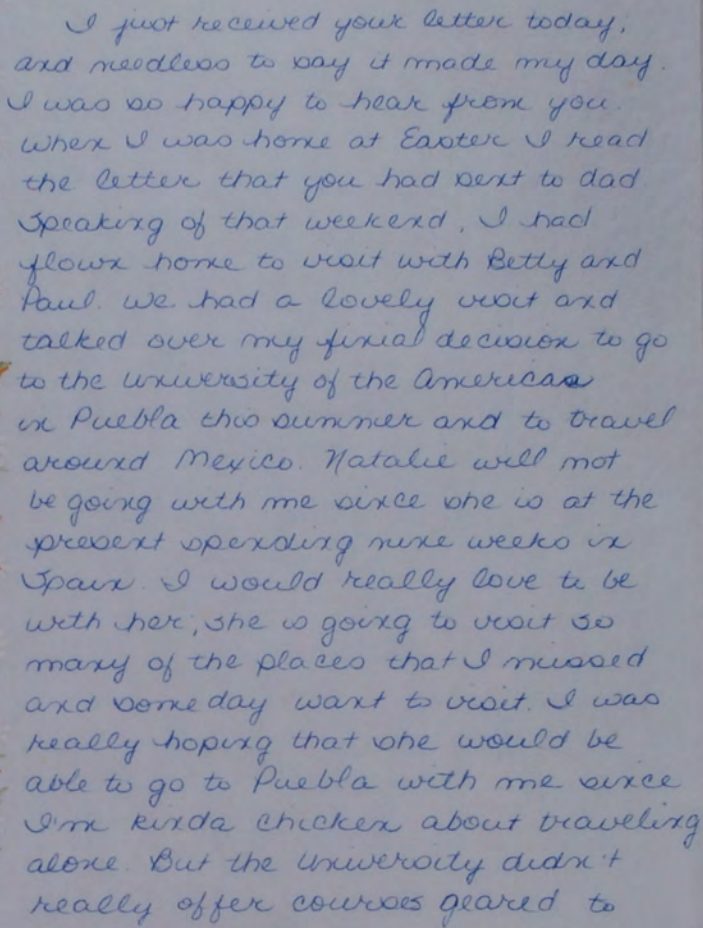 I just received your letter today,
and needless to say it made my day.
I was so happy to hear from you.
When I was home at Easter I read
the letter that you had sent to dad
Speaking of that weekend, I had
flown home to visit with Betty and
Paul. We had a lovely visit and
talked over my final decision to go
to the University of the Americas
in Puebla this summer and to travel
around Mexico. Natalie will not
be going with me since she is at the
present spending nine weeks in
Spain. I would really love to be
with her; she is going to visit so
many of the places that I missed
and someday want to visit. I was
really hoping that she would be
able to go to Puebla with me since
I'm kinda chicken about traveling
alone. But the University didn't
really offer courses geared to